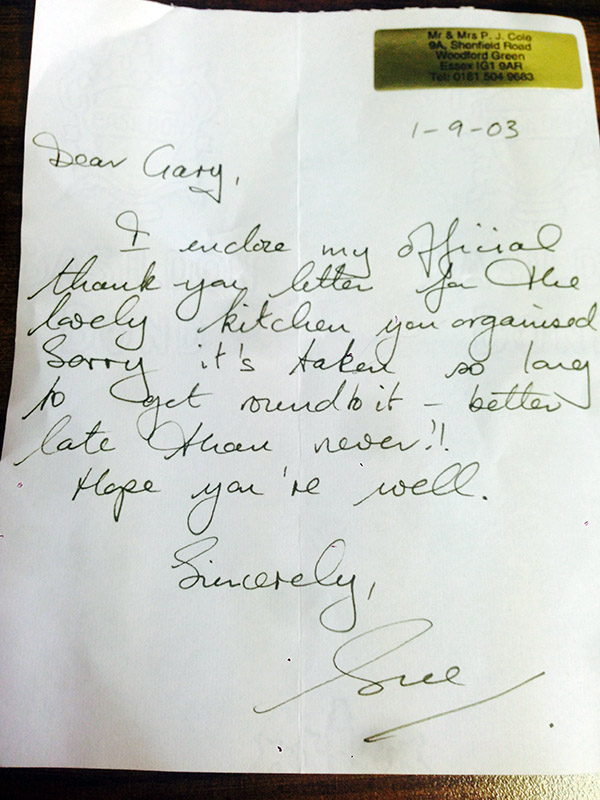 Mr & Mrs P. J. Cole
9A, Shenfield Road
Woodford Green
Essex IG1 9AR
Tel: 0181 504 9683
1-9-03
Dear Gary,
I enclose my official
thank you letter for the
lovely kitchen you organised
Sorry it's taken so long
to get round to it - better
late than never!!
Hope you're well.
Sincerely,
Sue